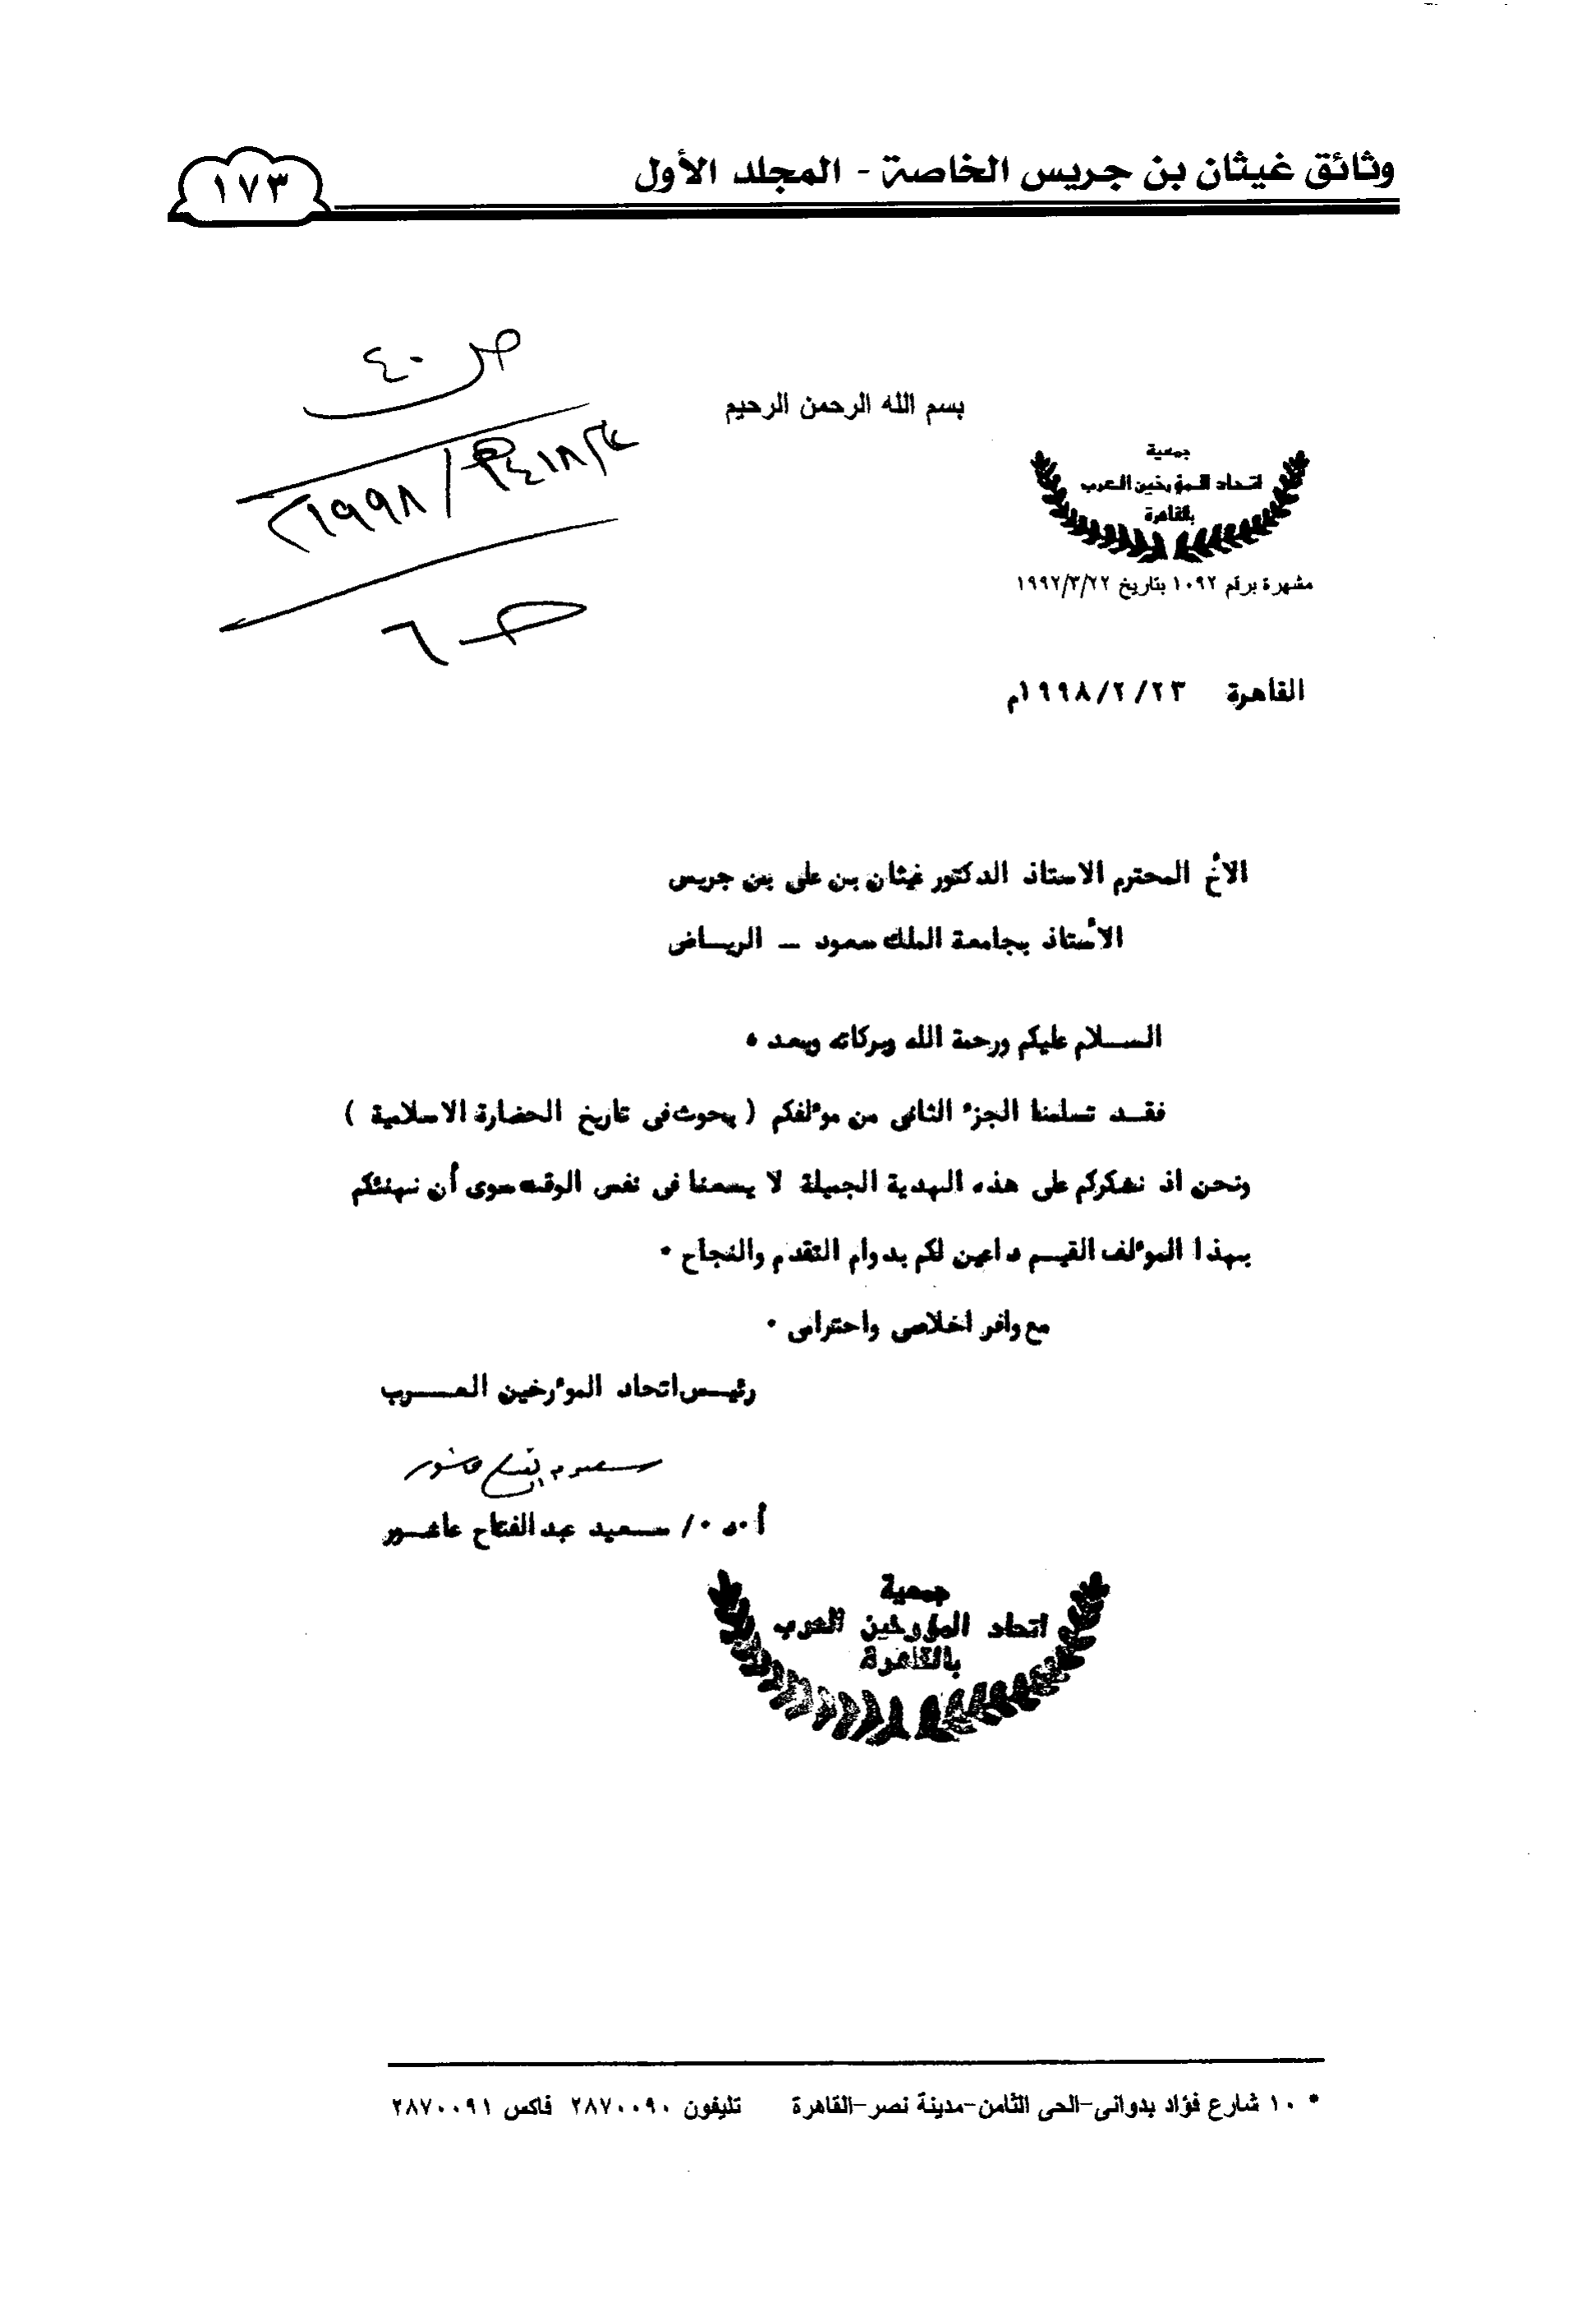 وثائق غيثان بن جريس الخاصة - المجلد الأول
١٧٣
ص ٤٠
بسم الله الرحمن الرحيم
جمعية
اتحاد المؤرخين العرب
بالقاهرة
مشهرة برقم ١٠٩٢ بتاريخ ١٩٩٢/٣/٢٢
القاهرة ٢٣/٢/١٩٩٨م
الأخ المحترم الاستاذ الدكتور غيثان بن على بن جريس
الأستاذ بجامعة الملك سعود - الرياض
السلام عليكم ورحمة الله وبركاته وبعد ٠
فقد تسلمنا الجزء الثانى من مؤلفكم ( بحوث فى تاريخ الحضارة الاسلامية )
ونحن اذ نشكركم على هذه الهدية الجميلة لا يسعنا فى نفس الوقت سوى أن نهنئكم
بهذا المؤلف القيم داعين لكم بدوام التقدم والنجاح ٠
مع وافر اخلاصى واحترامى ٠
رئيس اتحاد المؤرخين العرب
أ ٠د ٠/ سعيد عبد الفتاح عاشور
جمعية
اتحاد المؤرخين العرب
بالقاهرة
* ١٠ شارع فؤاد بدوانى-الحى الثامن-مدينة نصر-القاهرة تليفون ٢٨٧٠٠٩٠ فاكس ٢٨٧٠٠٩١